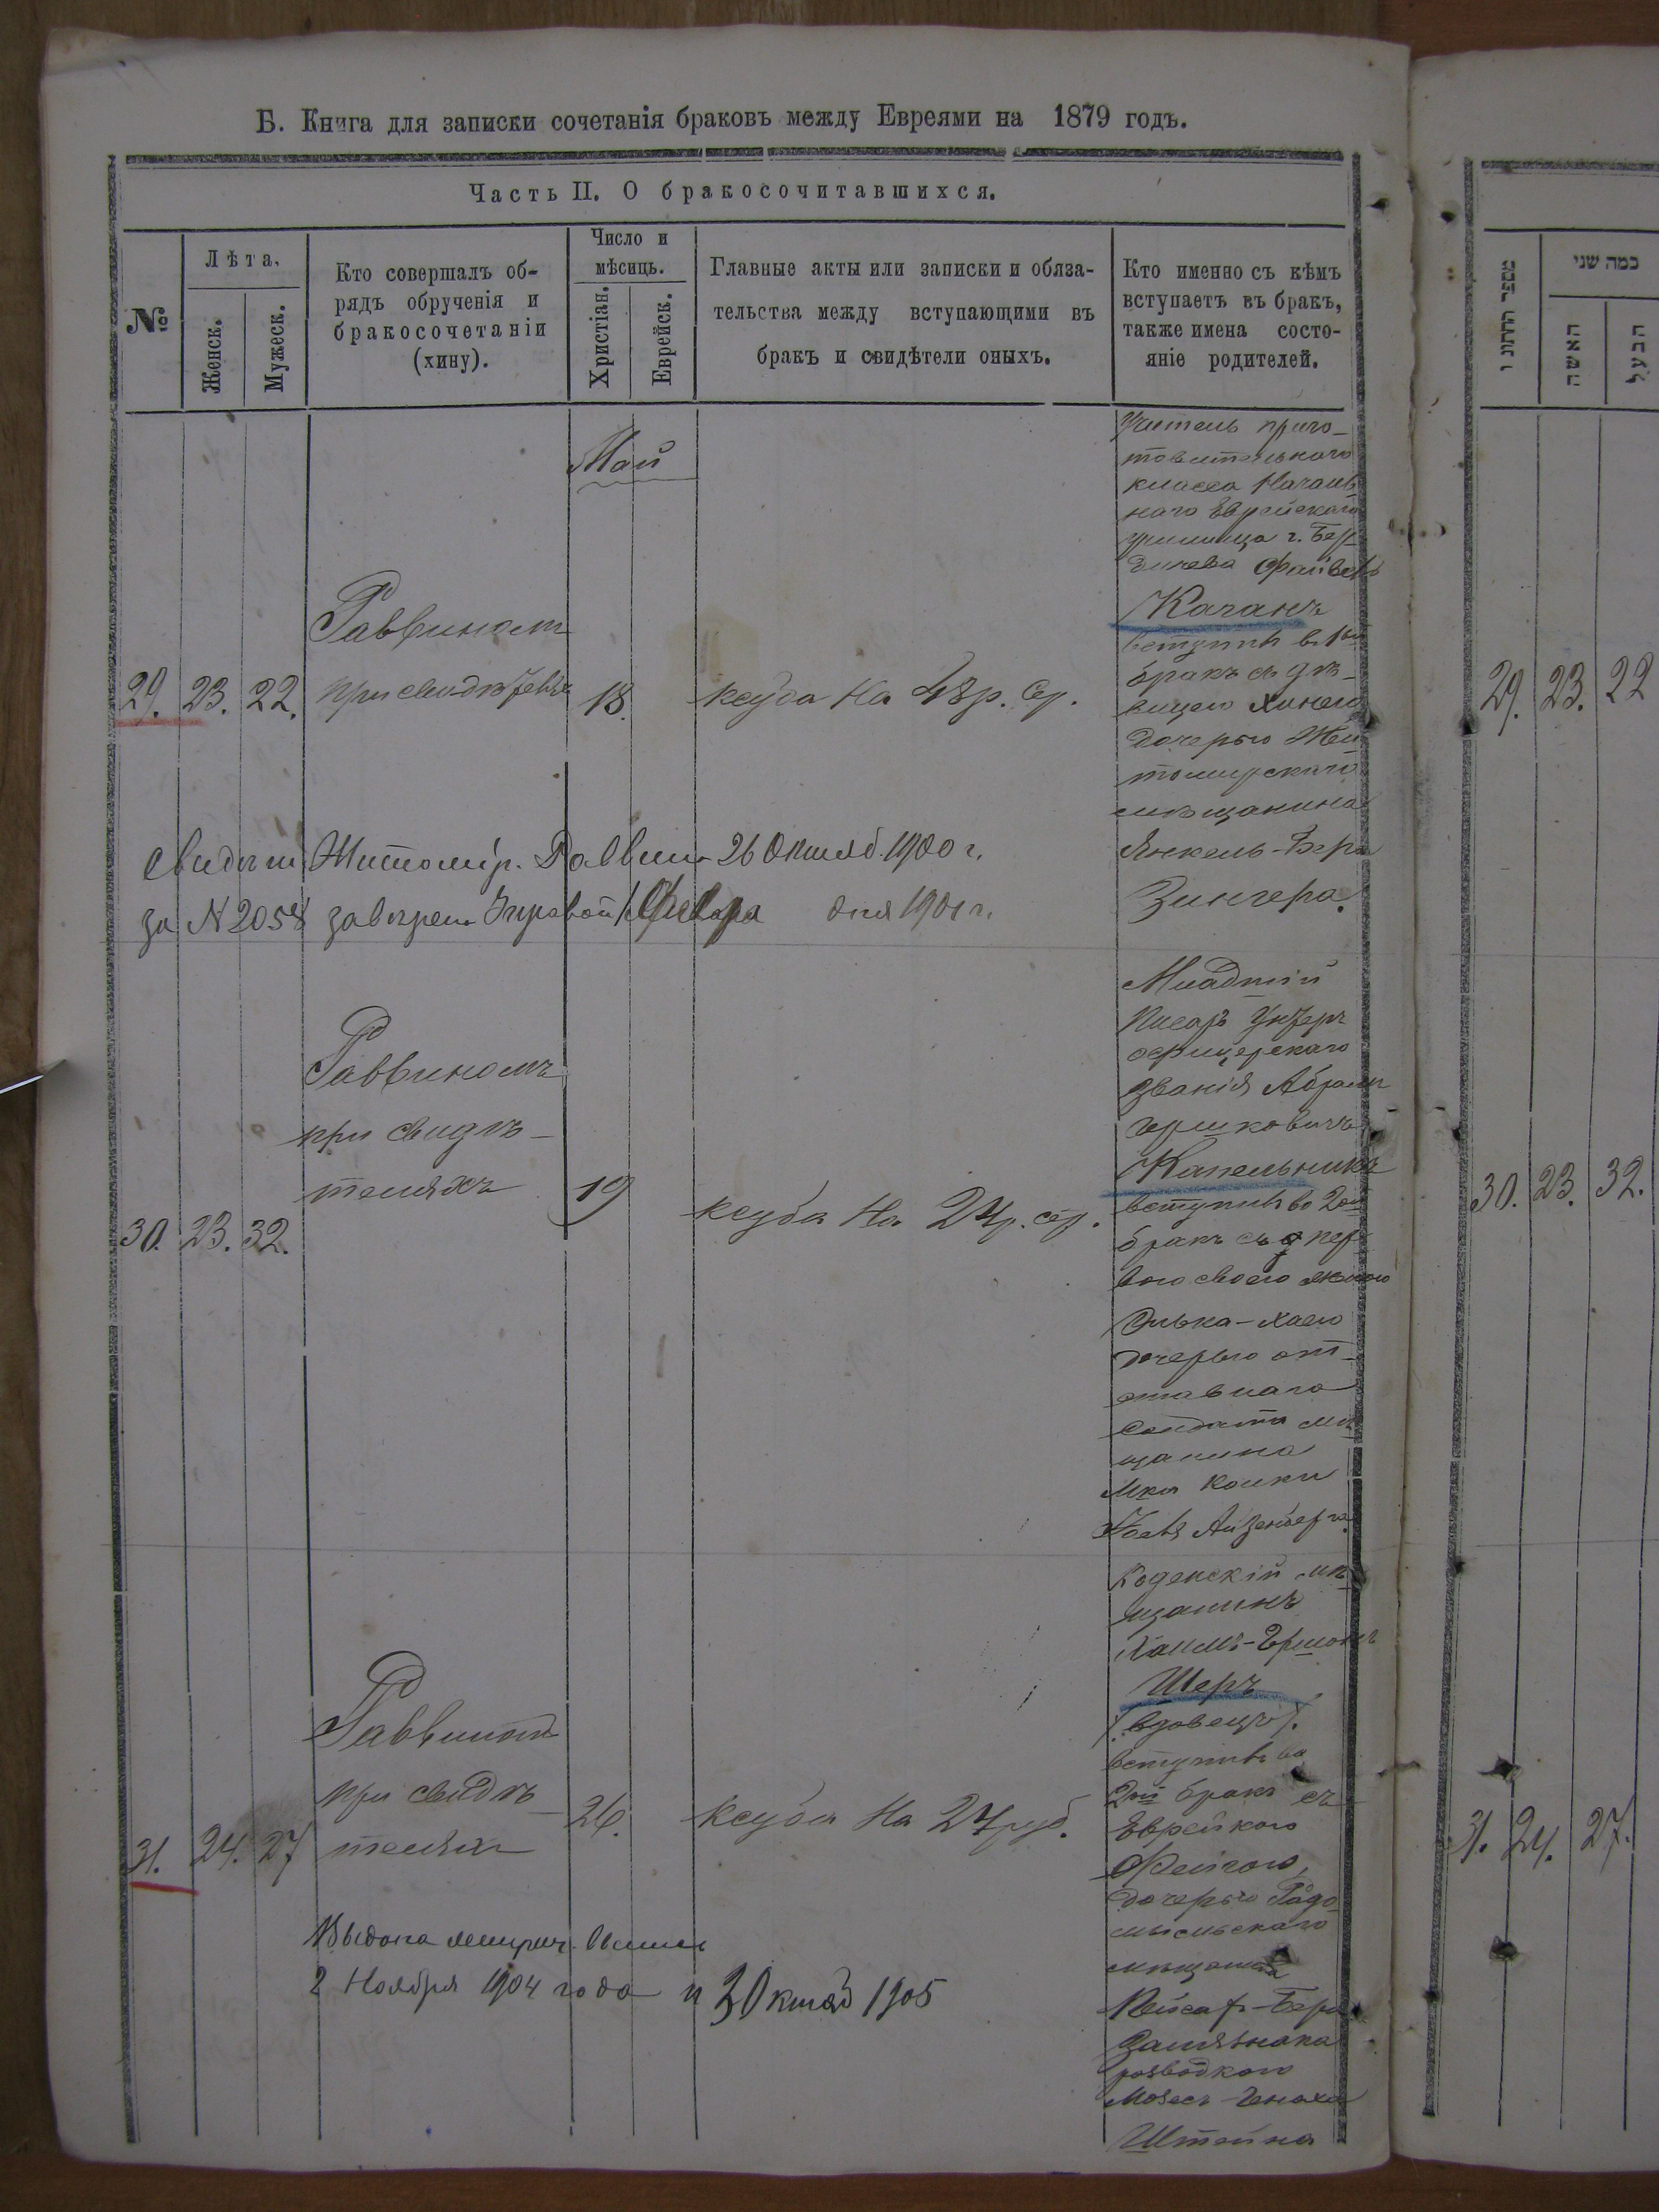 Б. Книга для записки сочетанія браковъ между Евреями на 1879 годъ.
Часть II. О бракосочитавшихся.
№
Лѣта.
Женск.
Мужеск.
Кто совершалъ об-
рядъ обрученія и
бракосочетаніи
(хину).
Число и
мѣсяць.
Христіан.
Еврейск.
Главные акты или записки и обяза-
тельства между вступающими въ
бракъ и свидѣтели оныхъ.
Кто именно съ кѣмъ
вступаетъ въ бракъ,
также имена состо-
яніе родителей.
Май
29. 23. 22.
Раввиномъ
при свидѣтеляхъ
18.
ксуба на 48 р. сер.
Учитель приго-
товительнаго
класса Началь-
наго Еврейскаго
училища г. Бер-
дичева Файвель
Качанъ
вступилъ въ 1ый
бракъ съ дѣ-
вицею Хинею
дочерью Жи-
томирскаго
мѣщанина
Янкель-Бера
Зингера.
Свидѣт. Житомір. Раввин. 26 Октяб. 1900 г.
за № 2058 завѣрен. Управой дня 1901 г.
30. 23. 32.
Раввиномъ
при свидѣ-
теляхъ
19
ксуба на 24 р. сер.
Младшій
писарь Унтеръ
офицерскаго
званія Абрамъ
Гершковичъ
Капельникъ
вступилъ во 2ой
бракъ съ пер-
вою своею женою
Элька-Хаею
дочерью от-
ставнаго
Солдата мѣ-
щанина
Мка Колки
Айзенберга.
31. 24. 27
Раввиномъ
при свидѣ-
теляхъ
26.
Ксуба на 24 руб.
Коденскій мѣ-
щанинъ
Хаимъ-Гершонъ
Шеръ
(вдовецъ).
вступилъ во
2ой бракъ съ
Еврейкою
Фейгою,
дочерью Радо-
мысльскаго
мѣщанина
Пейсах-Бера
разводкою
Мовес-Геноха
Штейна
Выдана метрич. выпись
2 Ноября 1904 года и 3 Октяб 1905
מספר החתונו
כמה שני
האשה
הבעל
29. 23. 22
30. 23. 32.
31. 24. 27.